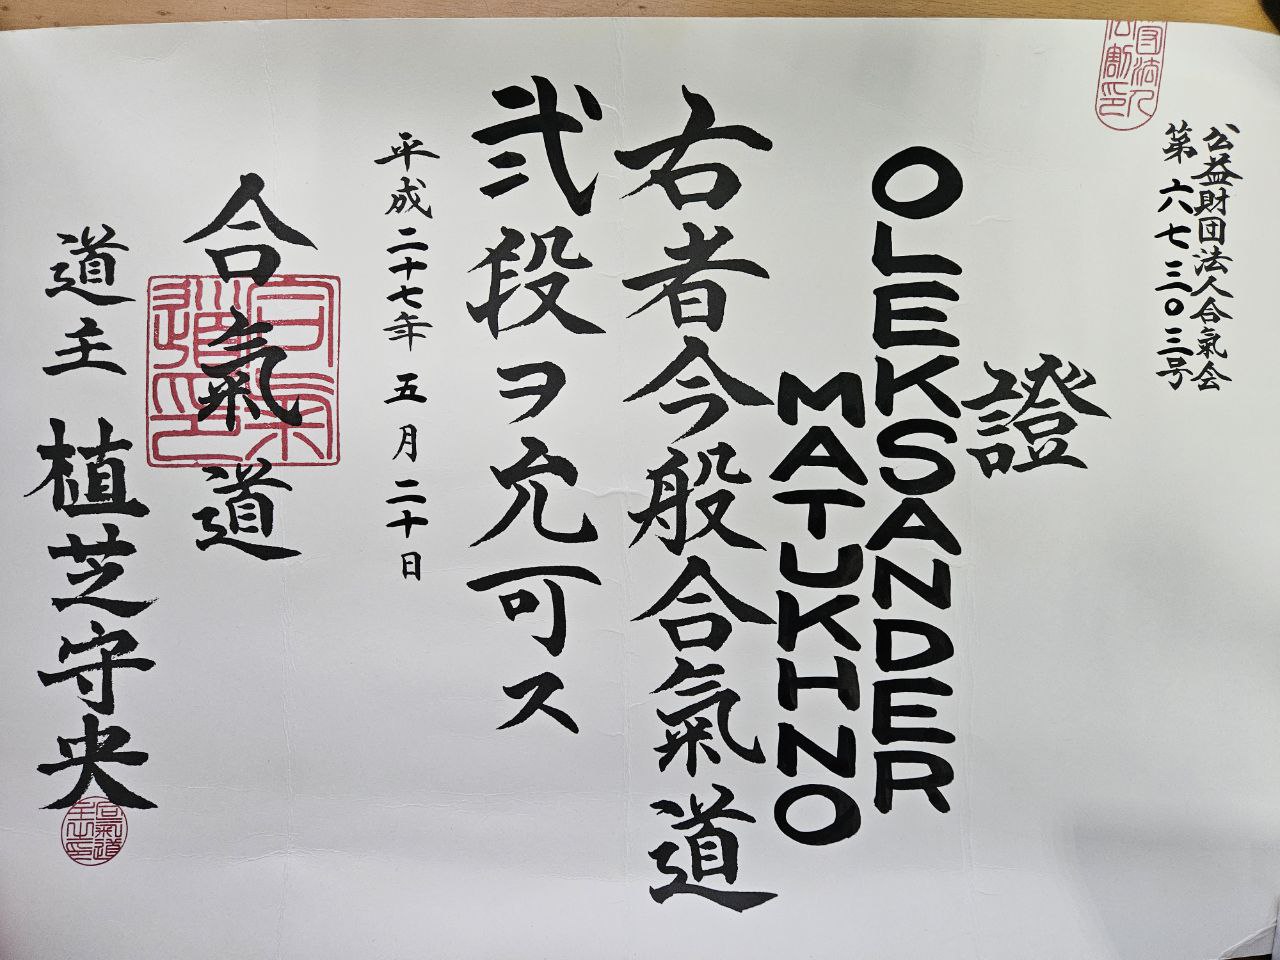 公益財団法人合氣会
第六七三〇三号
證
OLEKSANDER
MATUKHNO
右者今般合氣道
弐段ヲ允可ス
平成二十七年五月二十日
合氣道
道主 植芝守央